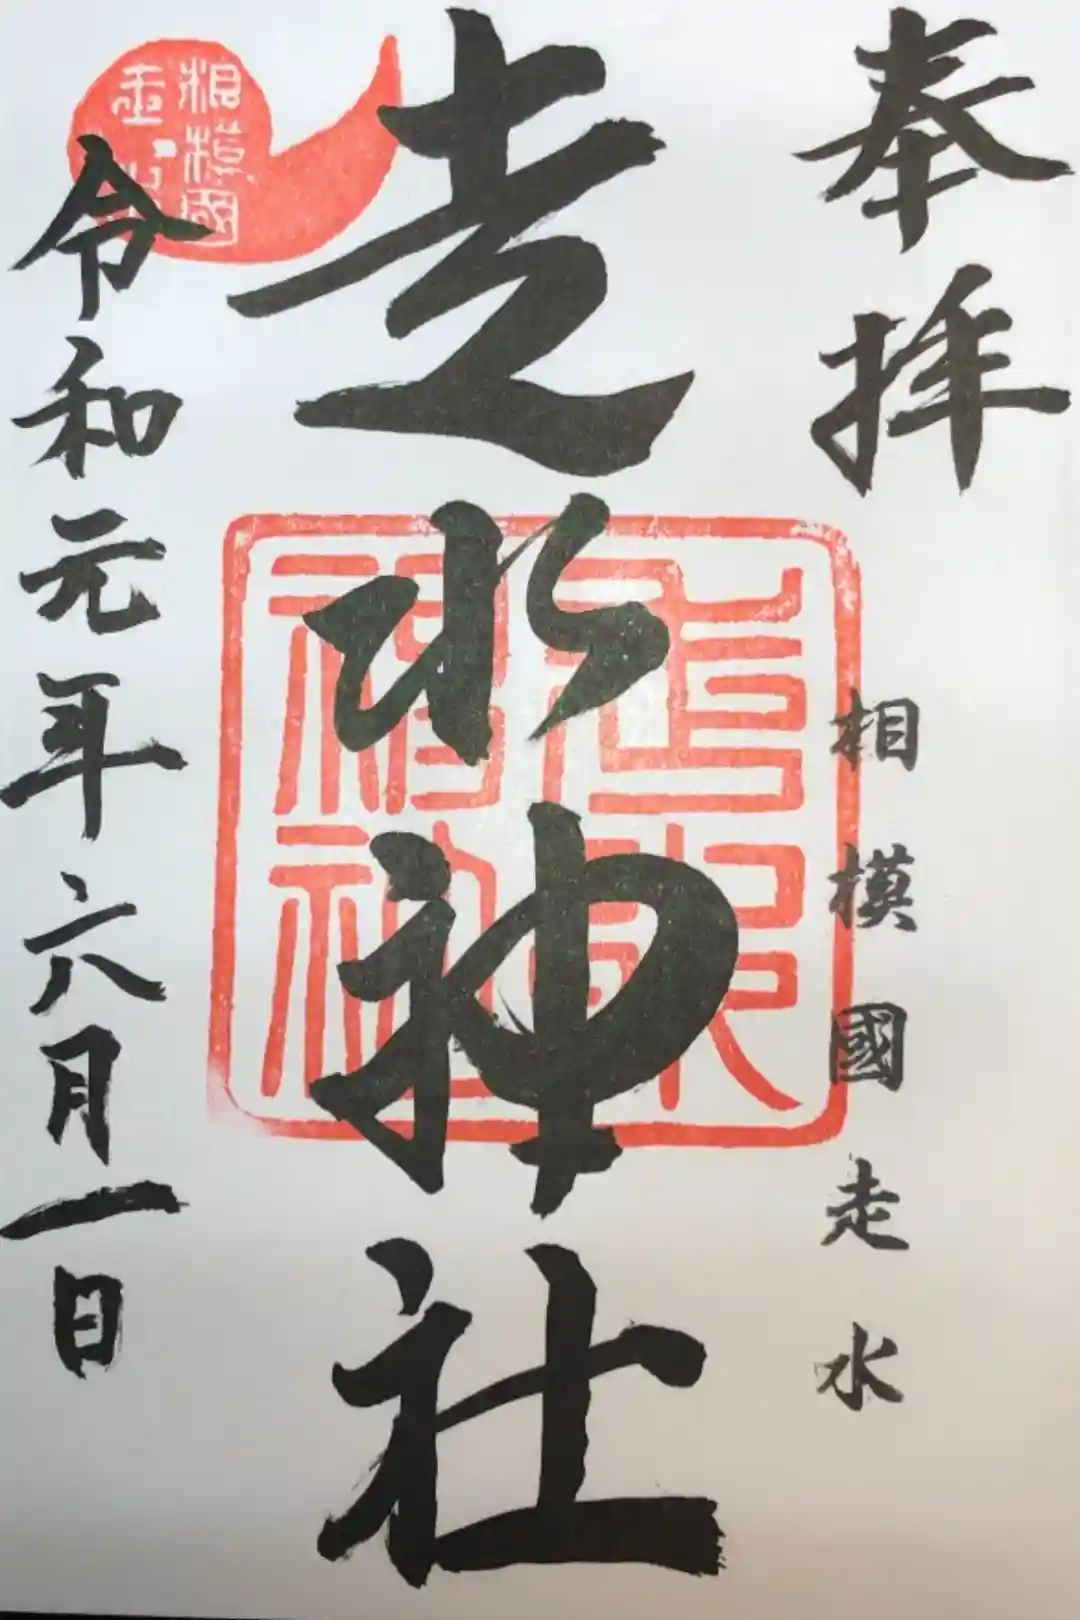 奉拝
相模國走水
走水神社
走水
神社
相模國
令和元年六月一日